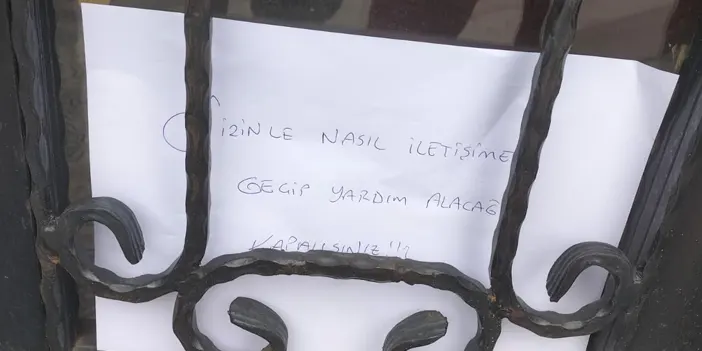 SİZİNLE NASIL İLETİŞİME
GEÇİP YARDIM ALACAĞ
KAPALISINIZ!!?